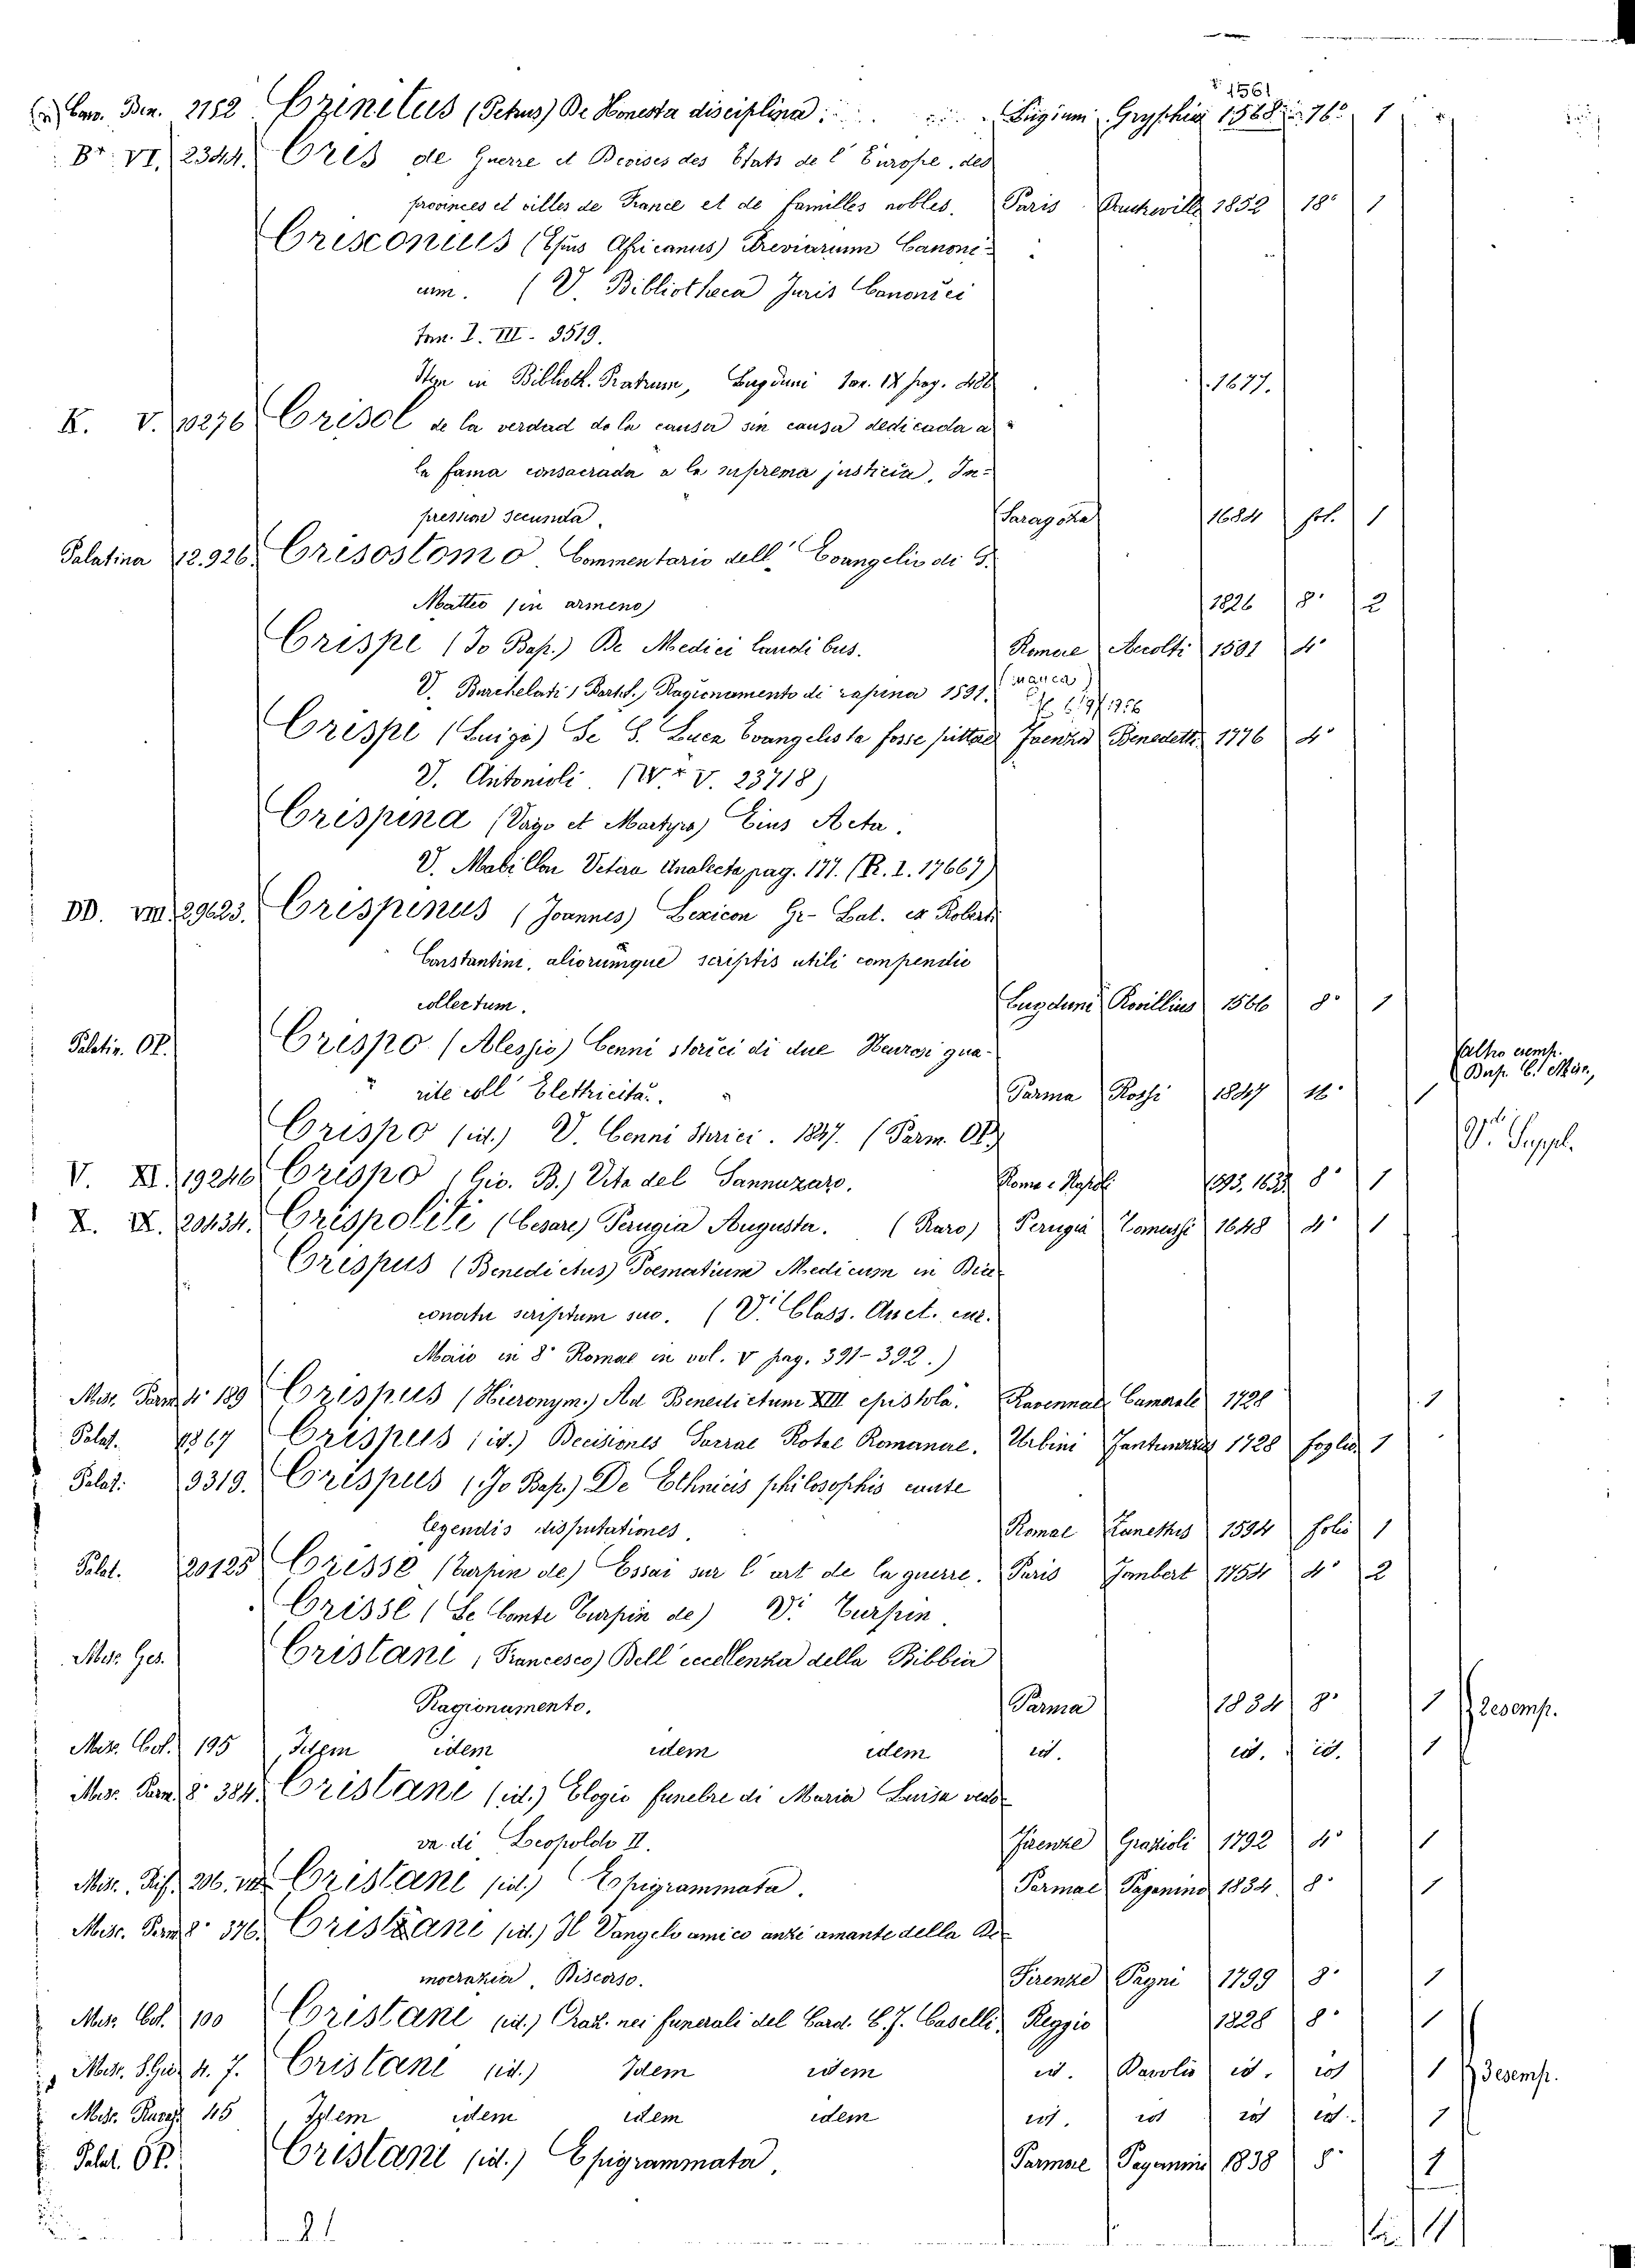 1561
Car. Ben. 2152 Crinitus (Petrus) De Honesta disciplina. Lugduni Gryphius 1568 16° 1
B* VI. 23444. Cris de Guerre et Devises des Etats de l'Europe, des
provinces et villes de France et de familles nobles. Paris 1852 18° 1
Crisconius (Episc Africanus) Breviarium Canoni-
cum. (V. Bibliotheca Juris Canonici
Tom. I. III. 9519.
Item in Biblioth. Patrum, Lugduni Tom. IX pag. 1677.
K. V. 10276 Crisol de la verdad de la causa sin causa dedicada a
la fama consacrada a la suprema justicia. Im-
pression secunda. Saragoza 1684 fol. 1
Palatina 12.926 Crisostomo Commentario dell' Evangelio di S.
Matteo (in armeno) 1826 8° 2
Crispe (Jo Bap.) De Medici Laudibus. Romae Accolti 1591 4°
V. Burchelati (Bart.) Ragionamento di rapina 1591. (manca)
Crispe (Luigi) Se S. Luca Evangelista fosse pittore Faenza Benedetti 1776 4°
V. Antonioli (W* V. 23718)
Crispina (Vago et Martyre) Eius Acta.
V. Mabillon Vetera Analecta pag. 177. (R. I. 17667)
DD. VIII. 29623. Crispinus (Joannes) Lexicon Gr-Lat. ex Roberti
Constantini, aliorumque scriptis utili compendio
collectum. Lugduni Rovillius 1566 8° 1
Palatin. OP. Crispo (Alessio) Cenni storici di due Neurosi gua-
rite coll' Elettricità. Parma Rossi 1847 16° 1 (altro esemp.
Crispo (id.) V. Cenni Storici. 1847. (Parm. OP.) V. Suppl.
V. XI. 19246 Crispo (Gio. B.) Vita del Sannazaro. Roma e Napoli 1593. 1633 8° 1
X. IX. 20434. Crispoliti (Cesare) Perugia Augusta. (Raro) Perugia Tomassi 1648 4° 1
Crispus (Benedictus) Poematium Medicum in Dia-
conatu scriptum suo. (V. Class. Auct. cur.
Maio in 8° Romae in vol. V pag. 391-392.)
Misc. Parm 4° 189 Crispus (Hieronym.) Ad Benedictum XIII epistola. Ravennae Camerale 1728 1
Palat. 1867 Crispus (id.) Decisiones Sacrae Rotae Romanae. Urbini 1728 foglio 1
Palat. 9319. Crispus (Jo Bap.) De Ethnicis philosophis caute
legendis disputationes. Romae Zanettus 1594 folio 1
Palat. 20125 Crissé (Turpin de) Essai sur l'art de la guerre. Paris Jombert 1754 4° 2
Crissé (Le Comte Turpin de) V. Turpin.
Misc. Ges. Cristani (Francesco) Dell'eccellenza della Bibbia
Ragionamento. Parma 1834 8° 1 2 esemp.
Misc. Col. 195 Idem idem idem idem id. id. id. 1
Misc. Parm. 8° 384. Cristani (id.) Elogio funebre di Maria Luisa vedo-
va di Leopoldo II. Firenze Grazioli 1792 4° 1
Misc. Rif. 206. Cristani (id.) Epigrammata. Parmae Paganino 1834. 8° 1
Misc. Parm 8° 376. Cristiani (id.) Il Vangelo amico anzi amante della De-
mocrazia. Discorso. Firenze Pagni 1799 8° 1
Misc. Col. 100 Cristani (id.) Oraz. nei funerali del Card. C. F. Caselli. Reggio 1828 8° 1
Misc. 4. 7. Cristani (id.) Idem idem id. Davolio id. id 1 3 esemp.
Misc. 45 Idem idem idem idem id. id id id. 1
Palat. OP. Cristani (id.) Epigrammata. Parmae Paganini 1838 8° 1
21